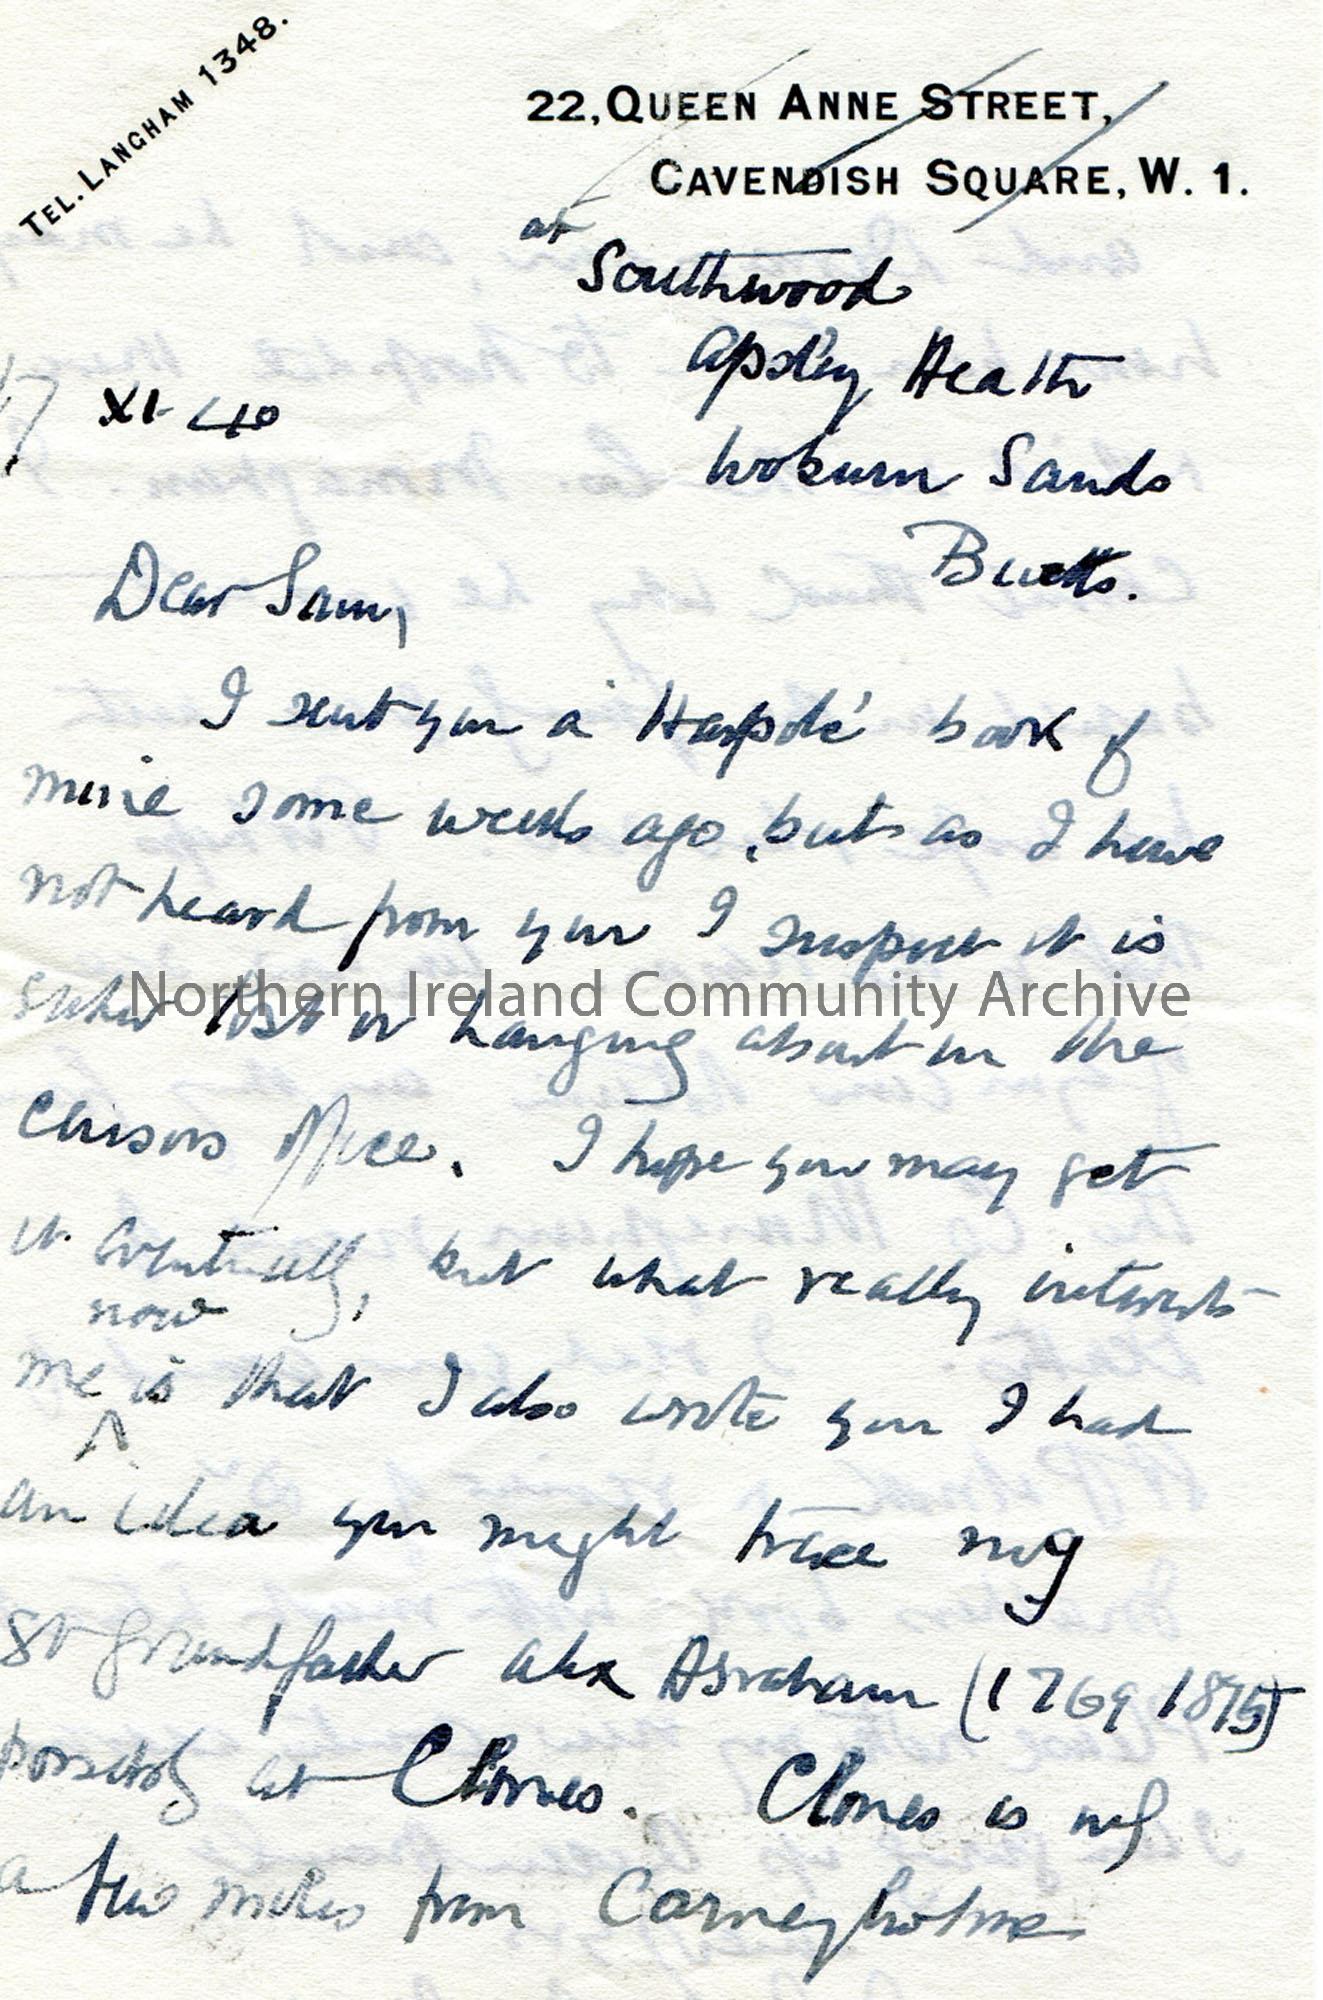 TEL. LANGHAM 1348.
22, QUEEN ANNE STREET,
CAVENDISH SQUARE, W. 1.
at
Southwood
Apsley Heath
Woburn Sands
Bucks.
XI 40
Dear Sam,
I sent you a book of
mine some weeks ago, but as I have
not heard from you I suspect it is
either lost or hanging about in the
Censors Office. I hope you may get
it eventually, but what really interests
now
me is that I also wrote you I had
an idea you might trace my
gt grandfather Alex Abraham (1769 1875)
possibly at Clones. Clones is only
a few miles from Carney
Northern Ireland Community Archive